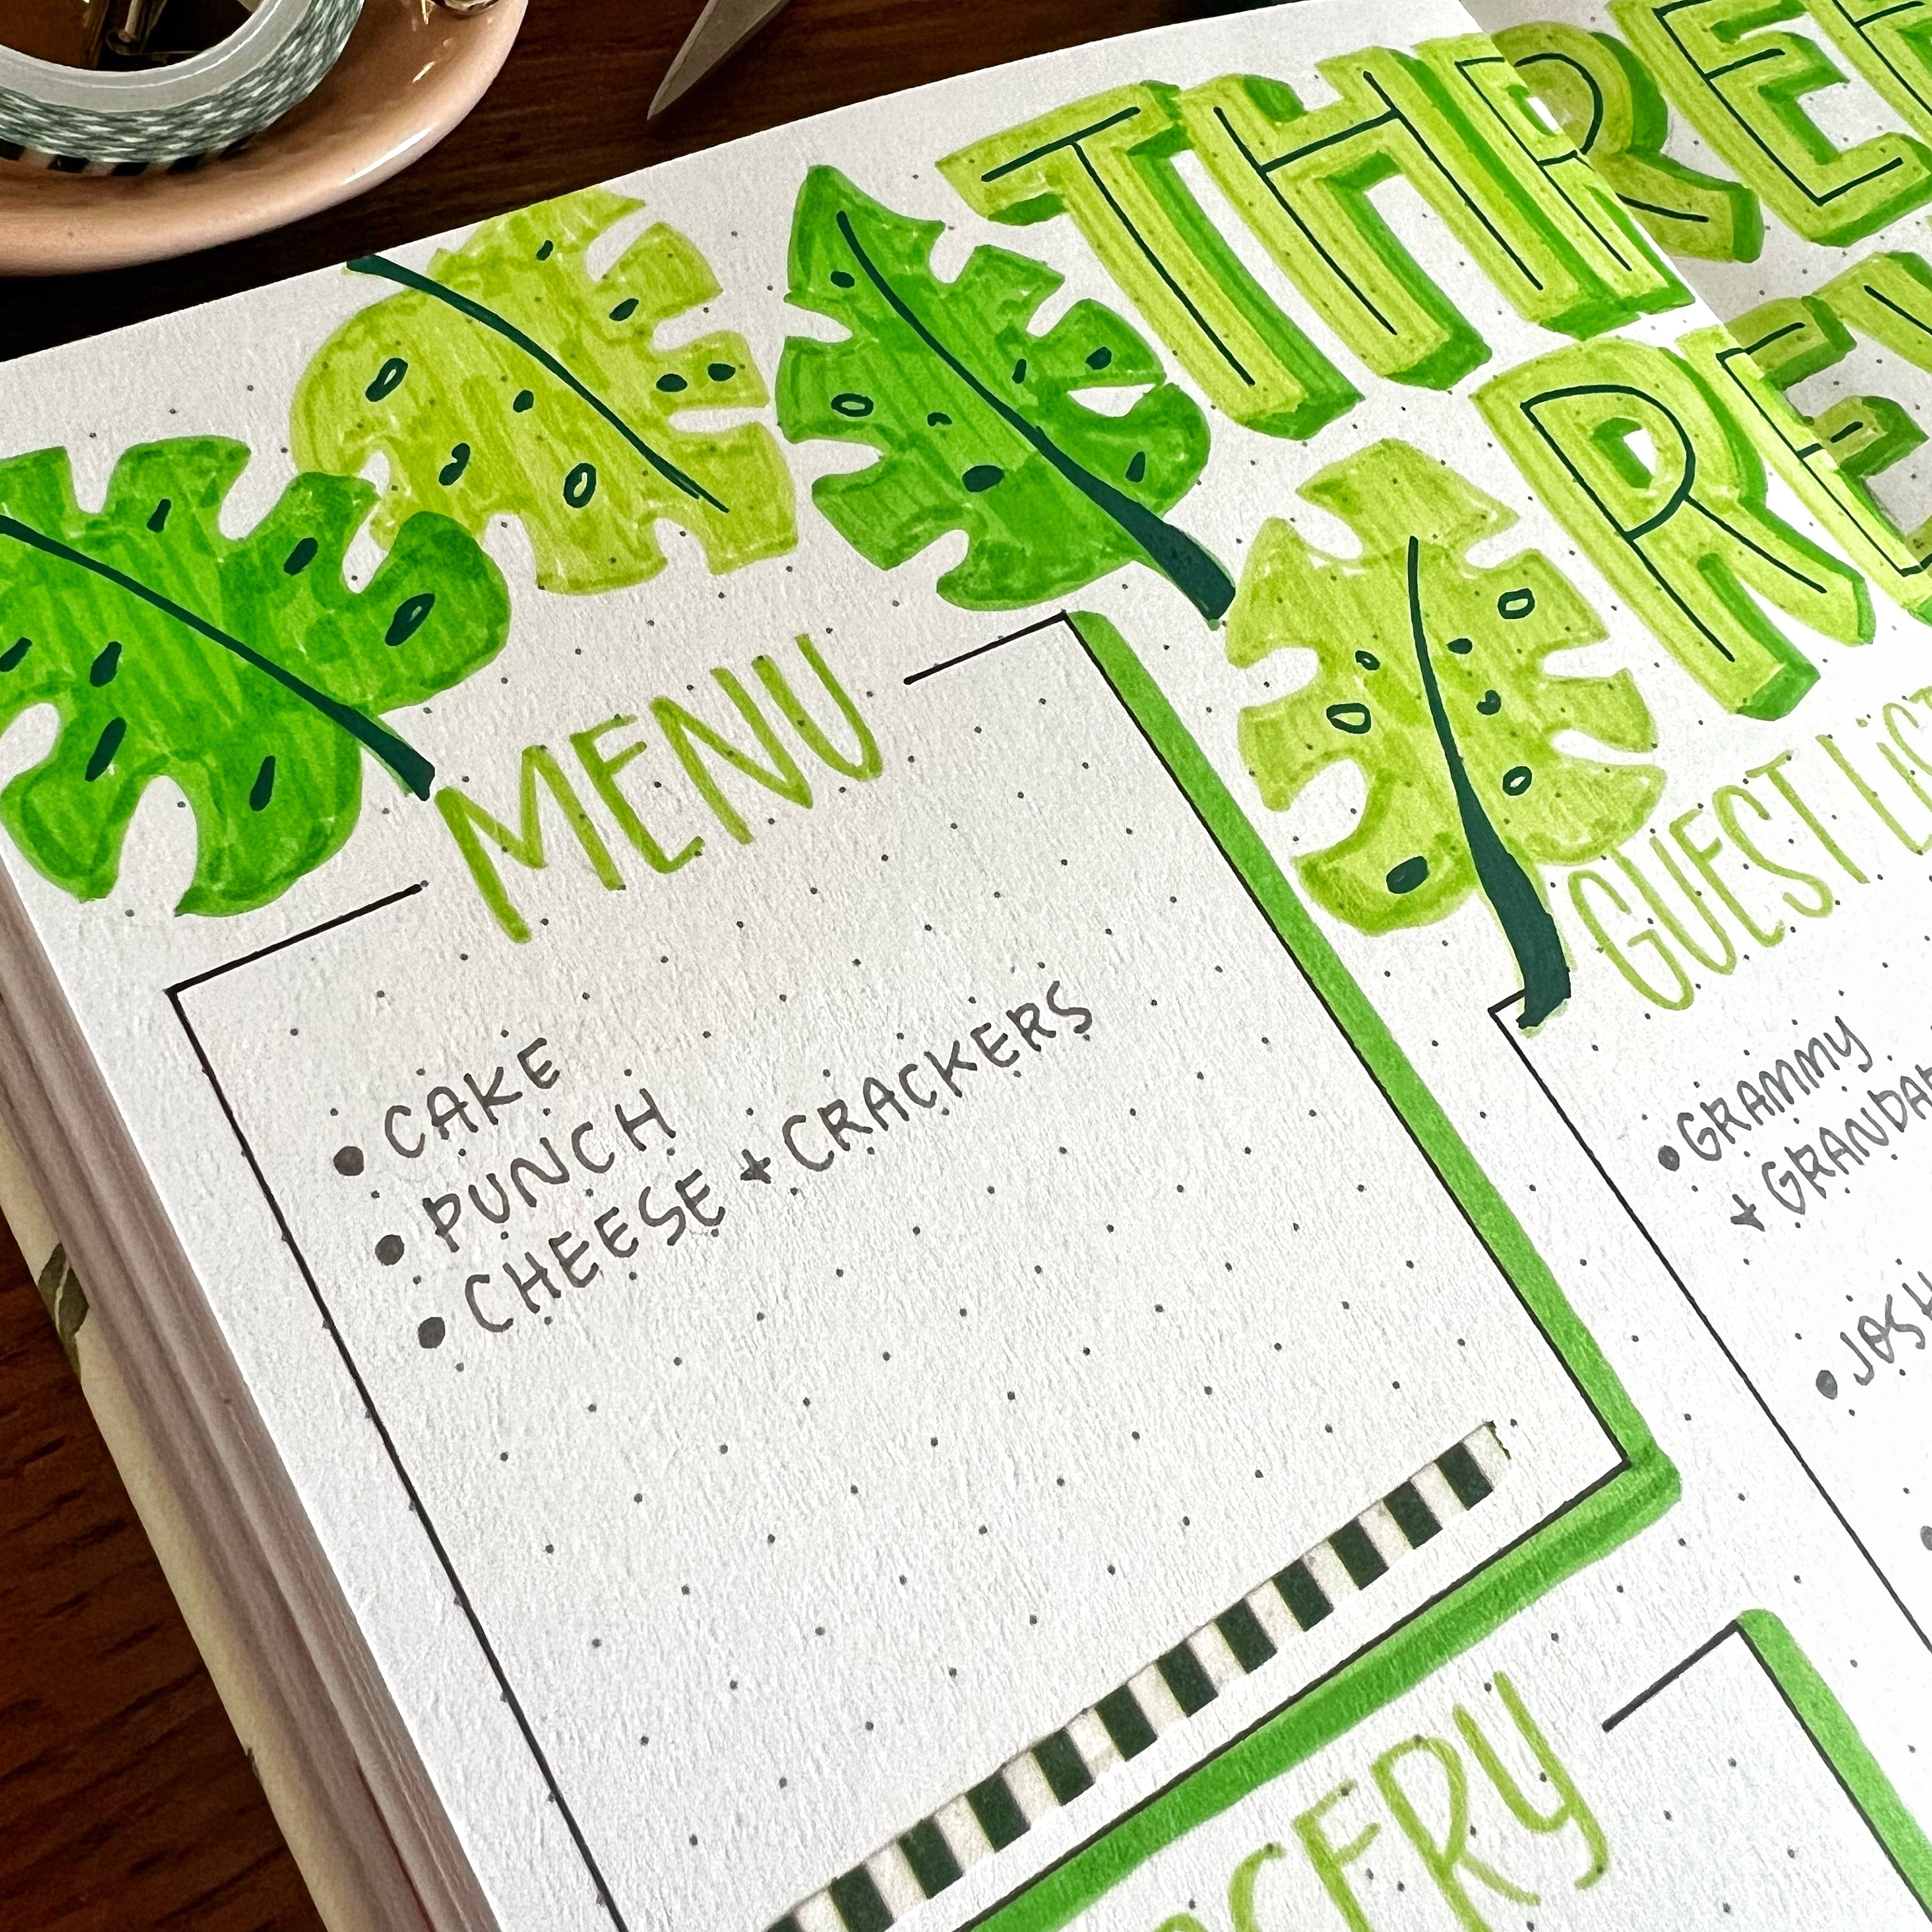 THREE
RE
MENU
• CAKE
• PUNCH
• CHEESE + CRACKERS
GUEST LIST
• GRAMMY
+ GRANDAD
• JOSH